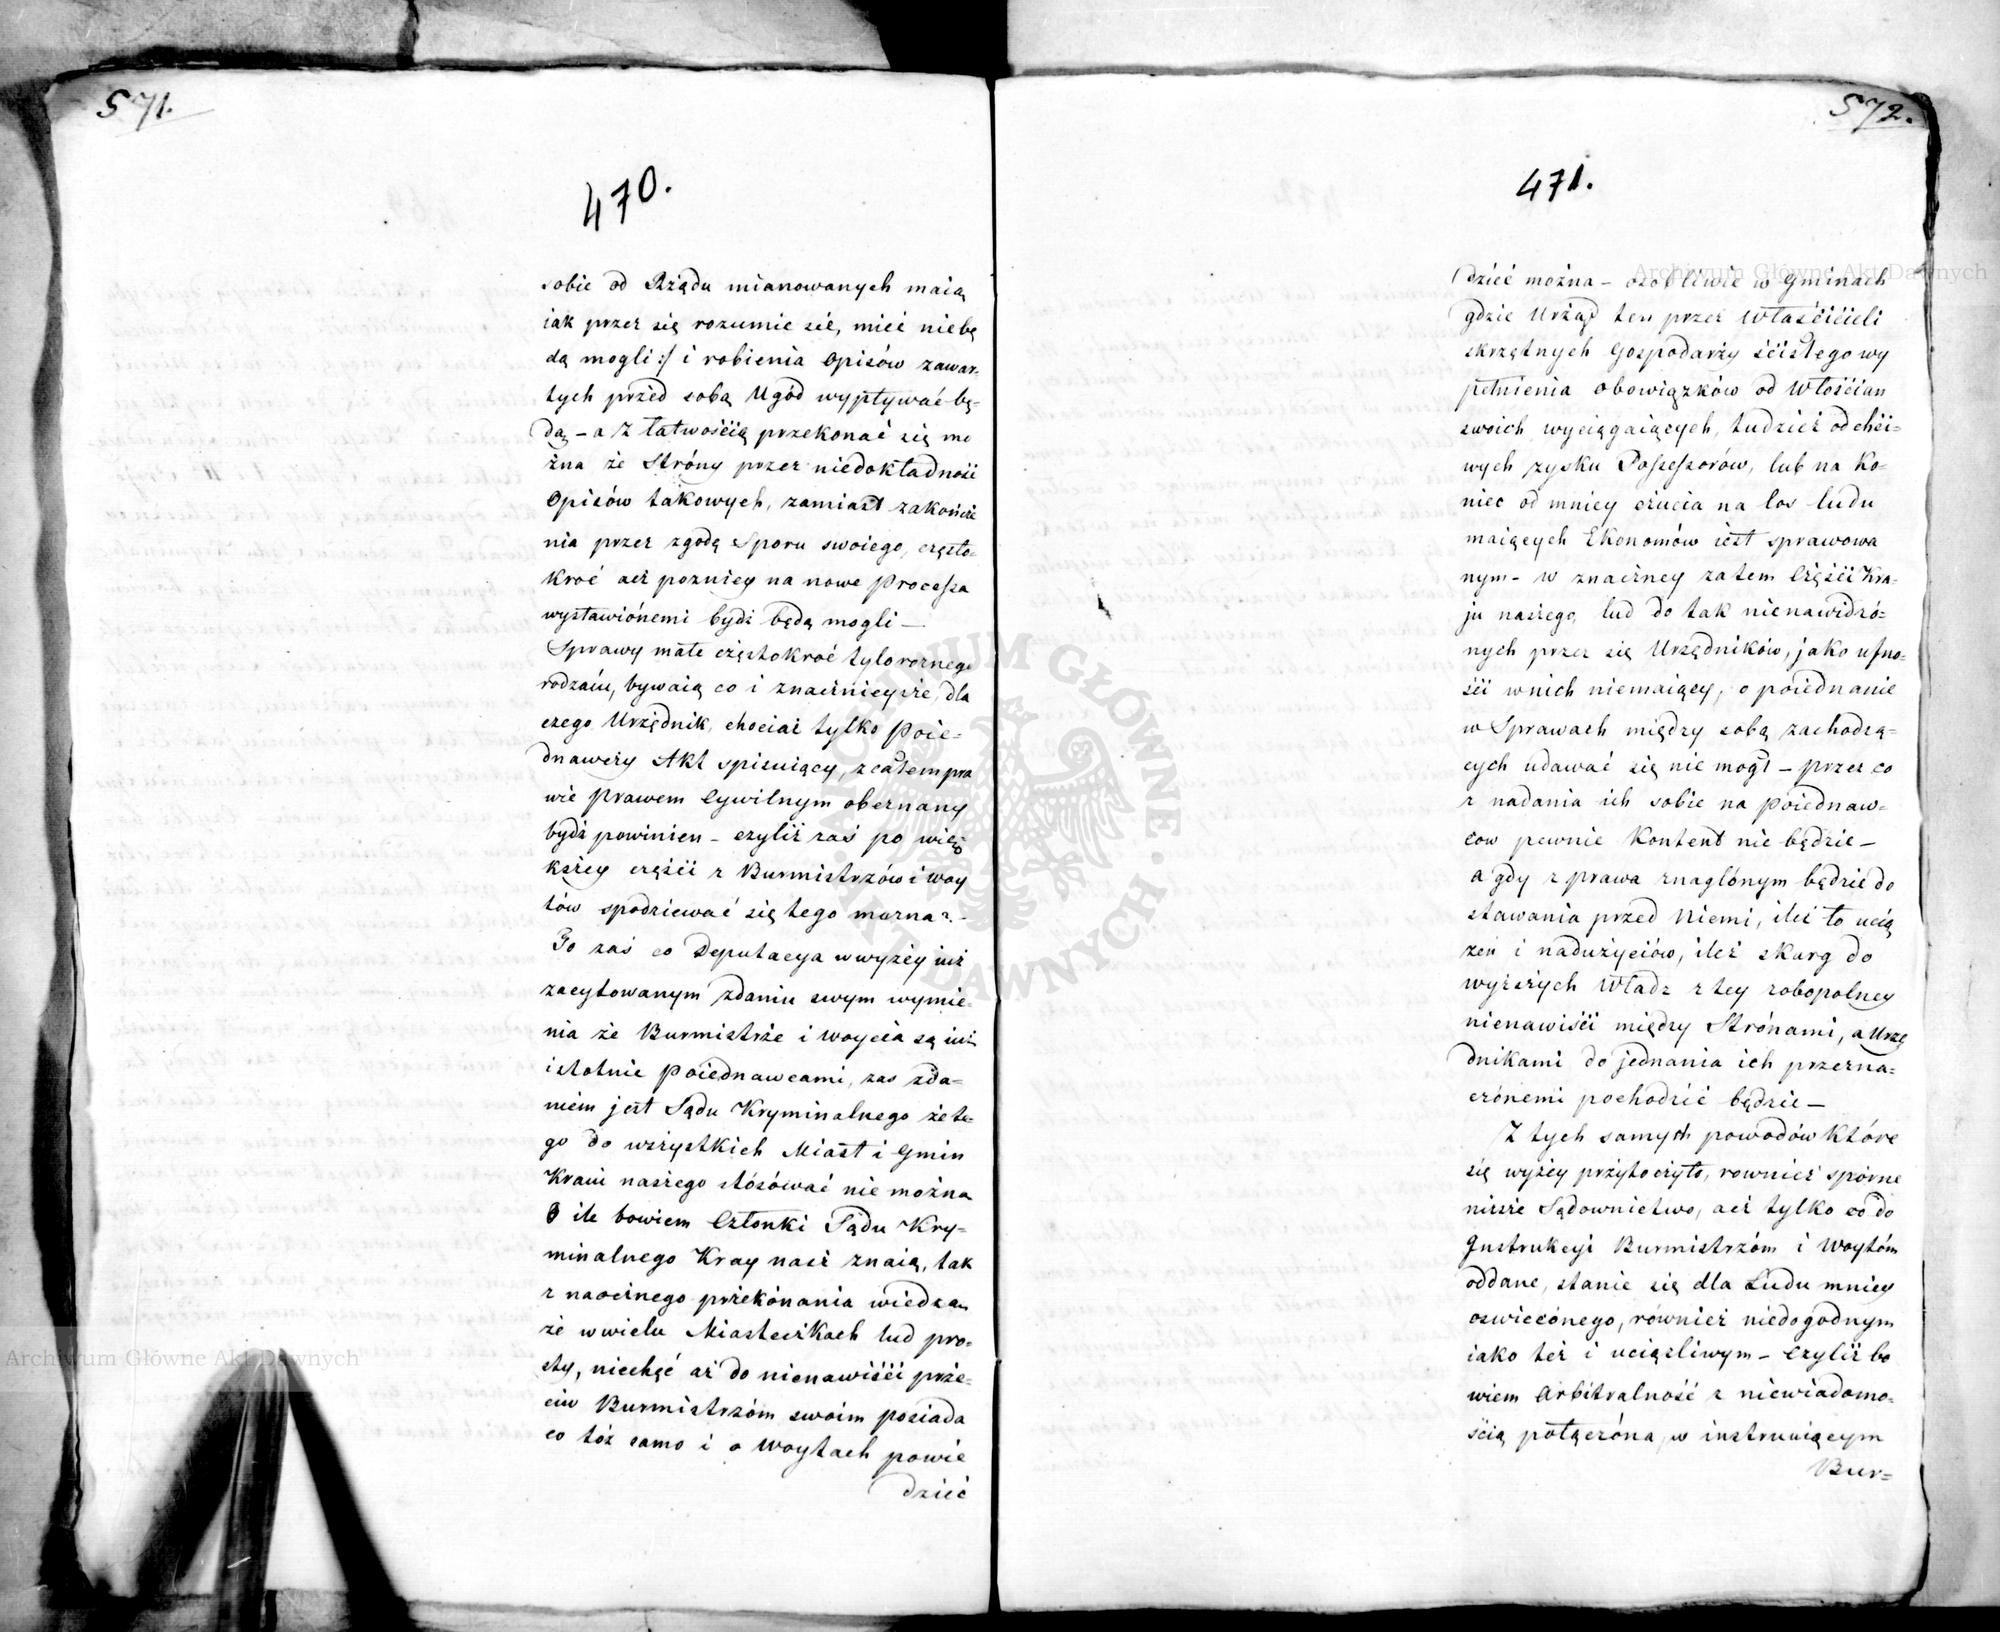 571.
470.
sobie od Rządu mianowanych maią
iak przez się rozumie się, mieć niebę
dą mogli :/ i robienia Opisów zawar-
tych przed sobą Ugód wypływać bę-
dą – a z łatwością przekonać się mo
żna że Stróny przez niedokładność
Opisów takowych, zamiast zakończe
nia przez zgodę Sporu swoiego, często-
kroć acz poznicy na nowe Processa
wystawiónemi bydź będą mogli —
Sprawy małe częstokroć tylo roznego
rodzaiu, bywaią co i znacznieysze, dla
czego Urzędnik, chociaż tylko Poie-
dnawczy Akt spisuiący, z całem pra
wie prawem Cywilnym obeznany
bydź powinien – czyliż zaś po wię
kszey części z Burmistrzów i Woy
tów spodziewać się tego można? –
To zaś co Deputacya w wyżey iuż
zacytowanym zdaniu swym wymie-
nia że Burmistrze i Woyci są iuż
istotnie Poiednawcami, zas zda-
niem jest Sądu Kryminalnego że te-
go do wszystkich Miast i Gmin
Kraiu naszego stósówać nie można
O ile bowiem Członki Sądu Kry-
minalnego Kray nasz znaią, tak
z naocznego przekónania wiedzą
że w wielu Miasteczkach lud pro-
sty, niechęć aż do nienawiści prze-
ciw Burmistrzóm swoim posiada
co tóż samo i o Woytach powie
dzieć
Archiwum Główne Akt Dawnych
572.
471.
dzieć można – osobliwie w Gminach
gdzie Urząd ten przez Właścicieli
skrzętnych Gospodarzy ścisłego wy
pełnienia obowiązków od Włościan
swoich wyciągaiących, tudzież od chci-
wych zysku Possessorów, lub na Ko-
niec od mniey czucia na los ludu
maiących Ekonomów iest sprawowa
nym – w znaczney zatem Części Kra-
ju naszego, lud do tak nienawidzó-
nych przez się Urzędników, jako ufno-
ści w nich niemaiący, o poiednanie
w Sprawach między sobą zachodzą-
cych udawać się nie mógł – przez co
z nadania ich sobie na Poiednaw-
cow pewnie Kontent nie będzie –
a gdy z prawa znaglónym będzie do
stawania przed Niemi, ileż to ucią
żeń i nadużyciów, ileż skarg do
wyższych Władz z tey zobopolney
nienawiści między Strónami, a Urzę
dnikami do jednania ich przezna-
czónemi pochodzić będzie –
Z tych samych powodów które
się wyżey przytoczyło, rownież spórne
niższe Sądownictwo, acz tylko co do
Instrukcyi Burmistrzóm i Woytóm
oddane, stanie się dla Ludu mniey
oswiecónego, również niedogodnym
iako też i uciążliwym – Czyliż bo
wiem Arbitralność z niewiadomo-
ścią połączóna, w instruuiącym
Bur-
Archiwum Główne Akt Dawnych
ARCHIWUM GŁÓWNE AKT DAWNYCH